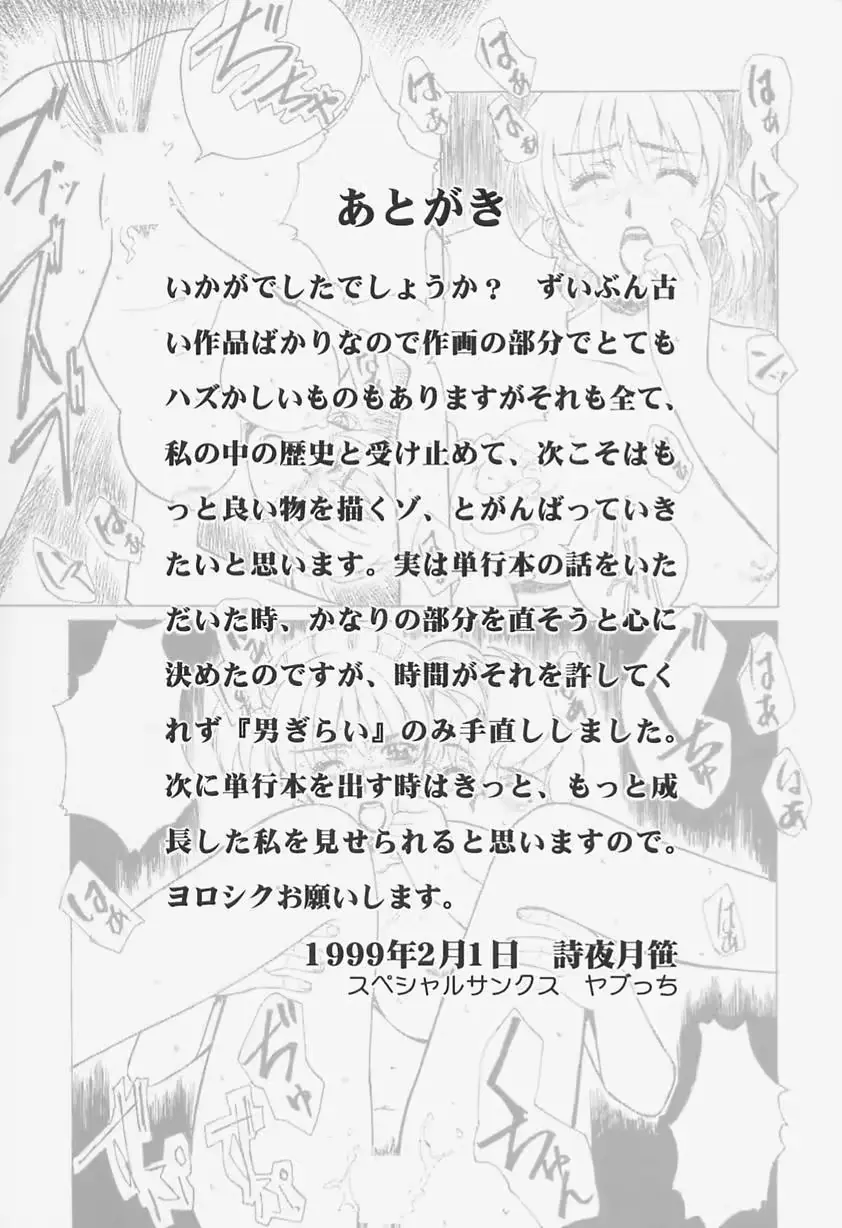 あとがき
いかがでしたでしょうか？　ずいぶん古
い作品ばかりなので作画の部分でとても
ハズかしいものもありますがそれも全て、
私の中の歴史と受け止めて、次こそはも
っと良い物を描くゾ、とがんばっていき
たいと思います。実は単行本の話をいた
だいた時、かなりの部分を直そうと心に
決めたのですが、時間がそれを許してく
れず『男ぎらい』のみ手直ししました。
次に単行本を出す時はきっと、もっと成
長した私を見せられると思いますので。
ヨロシクお願いします。
1999年2月1日　詩夜月笹
スペシャルサンクス　ヤブっち